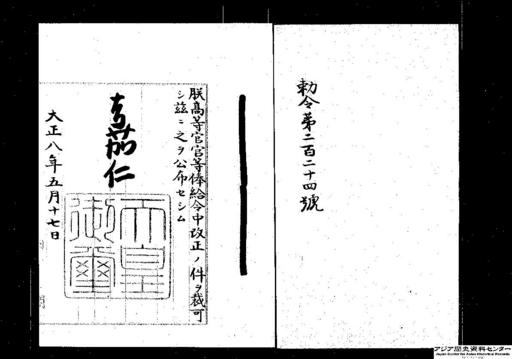 勅令第二百二十四號
朕高等官官等俸給令中改正ノ件ヲ裁可
シ茲ニ之ヲ公布セシム
嘉仁
天皇御璽
大正八年五月十七日
アジア歴史資料センター
Japan Center for Asian Historical Records